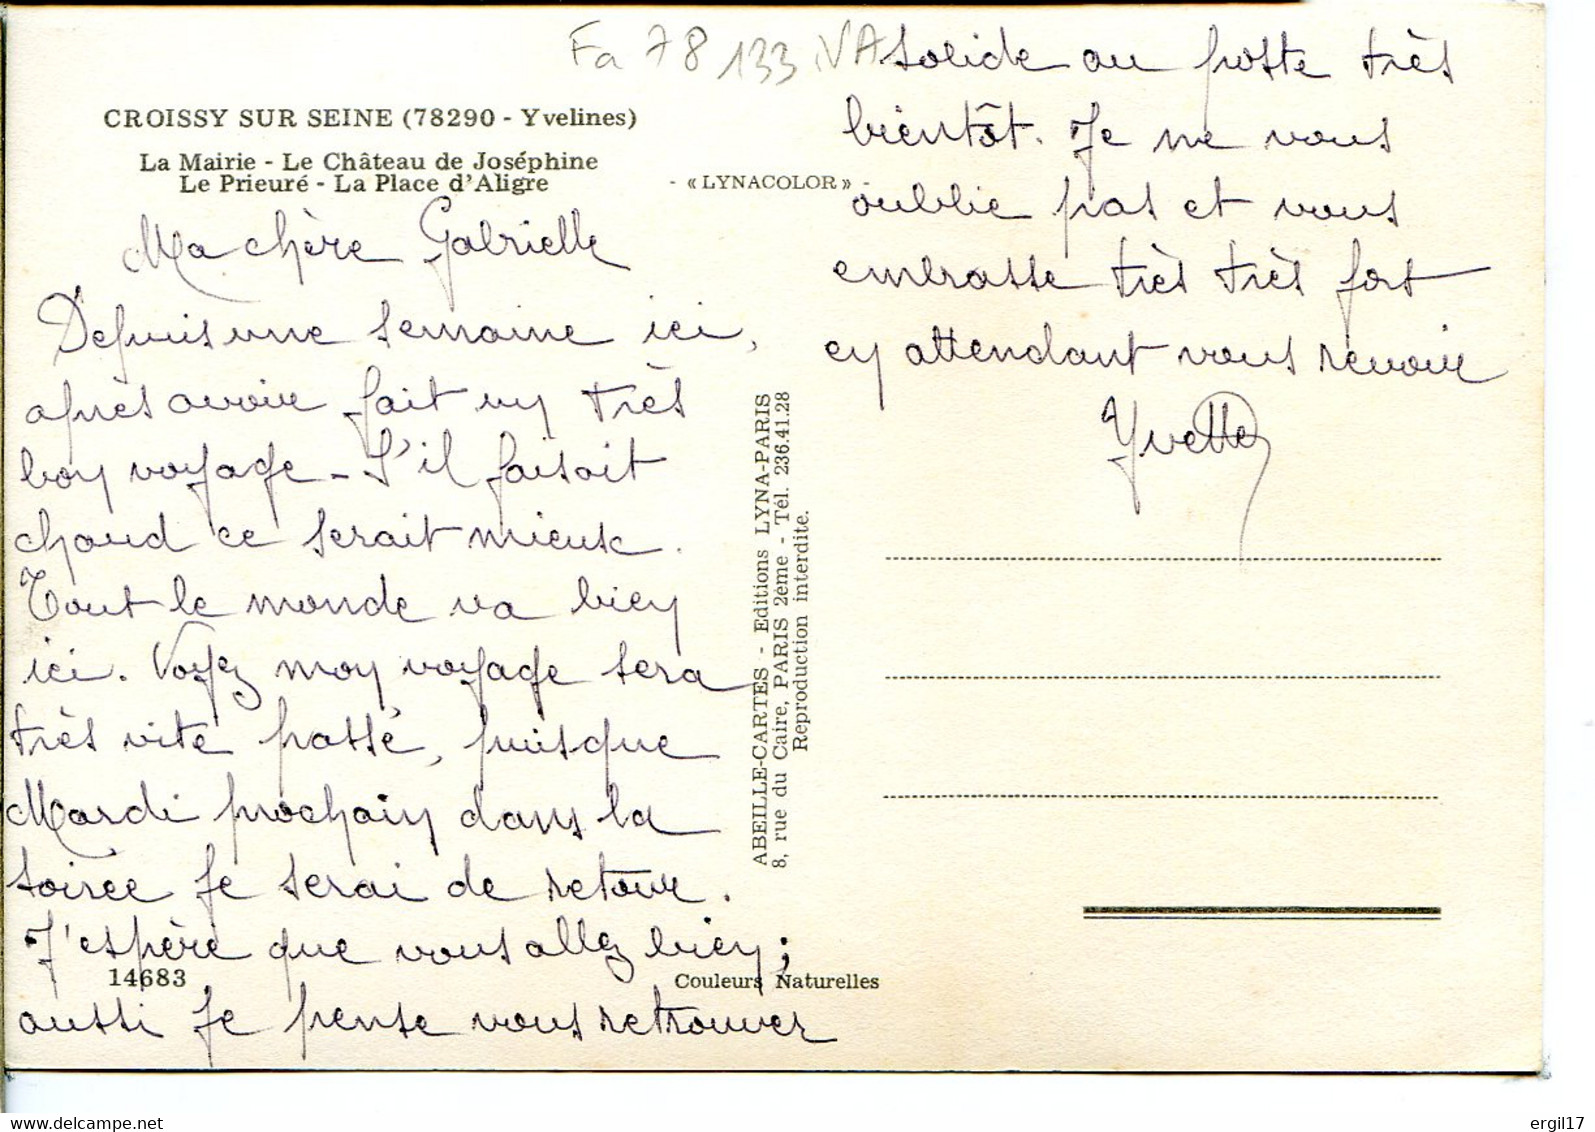 Fa 78 133 iVA
CROISSY SUR SEINE (78290 - Yvelines)
La Mairie - Le Château de Joséphine
Le Prieuré - La Place d'Aligre
- «LYNACOLOR» -
Ma chère Gabrielle
Depuis une semaine ici,
après avoir fait un très
bon voyage - S'il faisait
chaud ce serait mieux.
Tout le monde va bien
ici. Voyez mon voyage sera
très vite passé, puisque
Mardi prochain dans la
soirée je serai de retour.
J'espère que vous allez bien;
aussi je pense vous retrouver
solide au poste très
bientôt. Je ne vous
oublie pas et vous
embrasse très très fort
en attendant vous revoir
Yvette
ABEILLE-CARTES - Editions LYNA-PARIS
8, rue du Caire, PARIS 2eme - Tél. 236.41.28
Reproduction interdite.
14683
Couleurs Naturelles
www.delcampe.net
ergil17